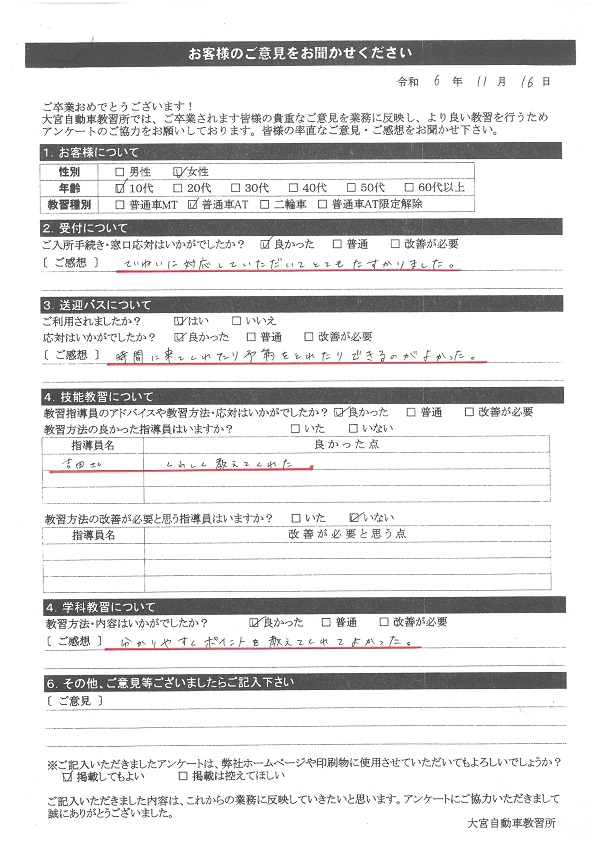 お客様のご意見をお聞かせください
令和 6 年 11 月 16 日
ご卒業おめでとうございます！
大宮自動車教習所では、ご卒業されます皆様の貴重なご意見を業務に反映し、より良い教習を行うため
アンケートのご協力をお願いしております。皆様の率直なご意見・ご感想をお聞かせ下さい。
1. お客様について
性別 □ 男性 ☑ 女性
年齢 ☑ 10代 □ 20代 □ 30代 □ 40代 □ 50代 □ 60代以上
教習種別 □ 普通車MT ☑ 普通車AT □ 二輪車 □ 普通車AT限定解除
2. 受付について
ご入所手続き・窓口応対はいかがでしたか？ ☑ 良かった □ 普通 □ 改善が必要
〔 ご感想 〕 ていねいに対応していただいてとてもたすかりました。
3. 送迎バスについて
ご利用されましたか？ ☑ はい □ いいえ
応対はいかがでしたか？ ☑ 良かった □ 普通 □ 改善が必要
〔 ご感想 〕 時間に来てくれたり予約をとれたりできるのがよかった。
4. 技能教習について
教習指導員のアドバイスや教習方法・応対はいかがでしたか？ ☑ 良かった □ 普通 □ 改善が必要
教習方法の良かった指導員はいますか？ □ いた □ いない
指導員名 良かった点
吉田さん くわしく教えてくれた
教習方法の改善が必要と思う指導員はいますか？ □ いた ☑ いない
指導員名 改善が必要と思う点
4. 学科教習について
教習方法・内容はいかがでしたか？ ☑ 良かった □ 普通 □ 改善が必要
〔 ご感想 〕 分かりやすくポイントを教えてくれてよかった。
6. その他、ご意見等ございましたらご記入下さい
〔 ご意見 〕
※ご記入いただきましたアンケートは、弊社ホームページや印刷物に使用させていただいてもよろしいでしょうか？
☑ 掲載してもよい □ 掲載は控えてほしい
ご記入いただきました内容は、これからの業務に反映していきたいと思います。アンケートにご協力いただきまして
誠にありがとうございました。
大宮自動車教習所